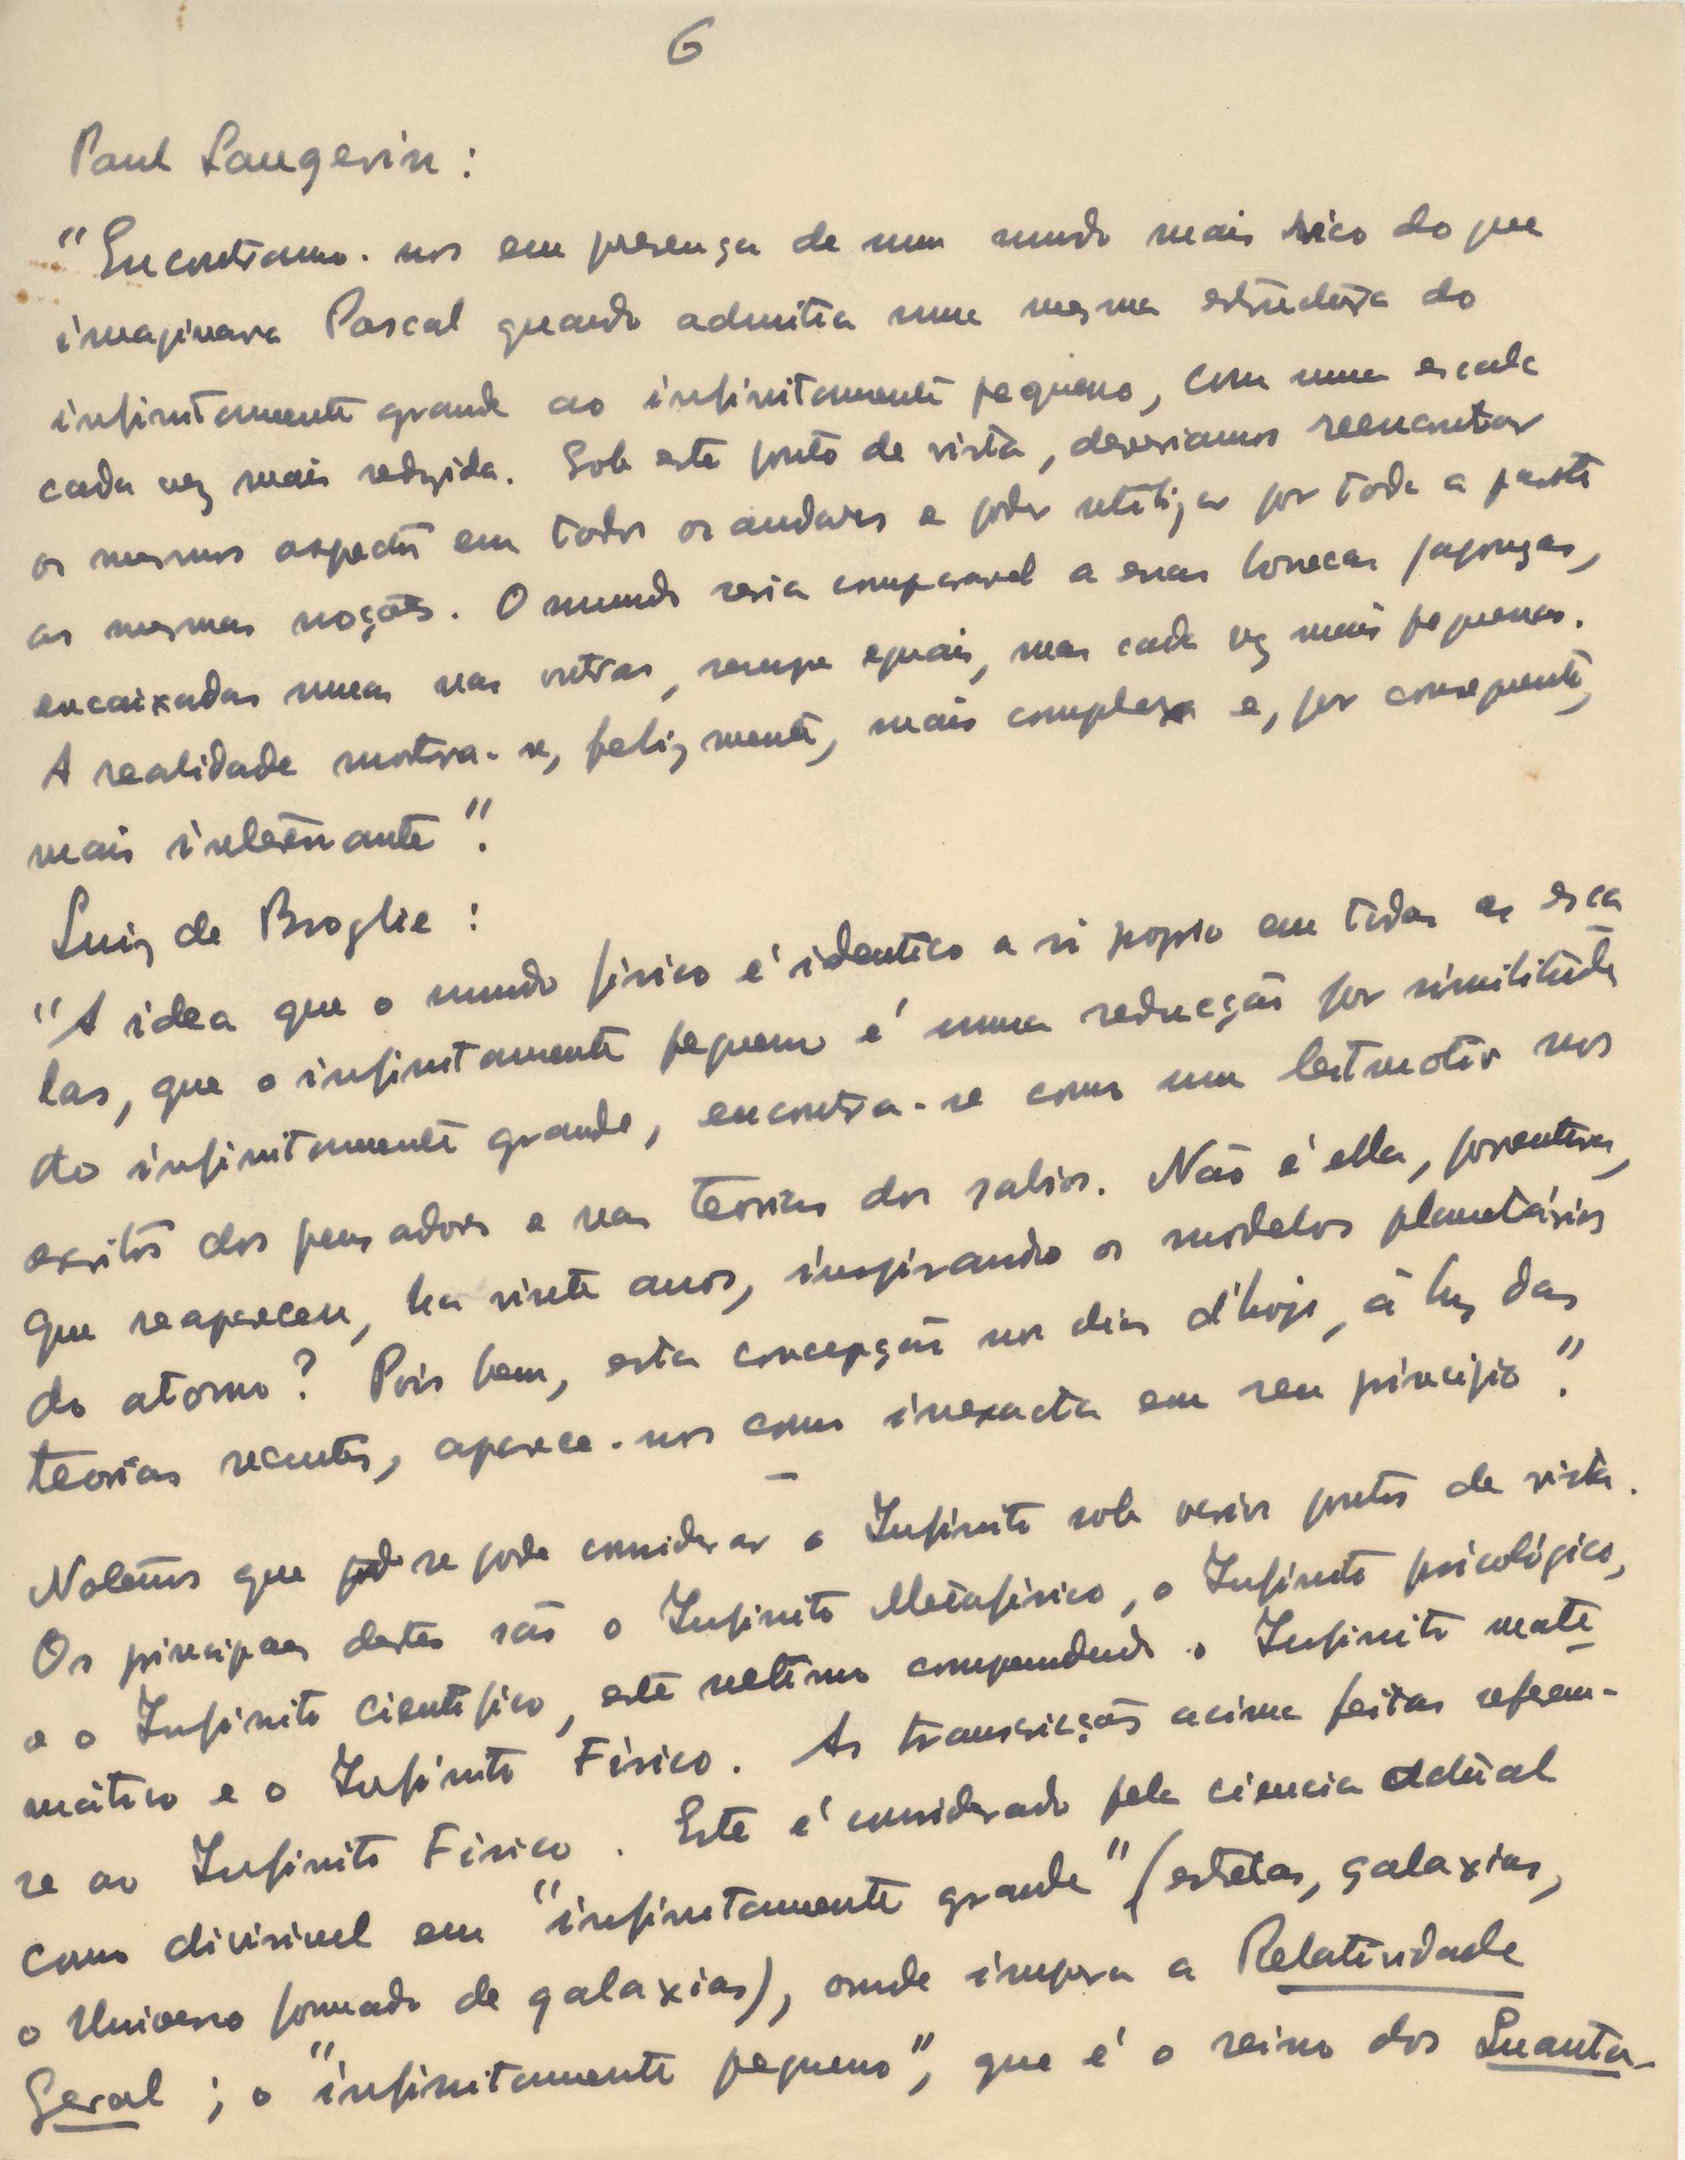 6
Paul Langevin :
"Encontramo-nos em presença de um mundo mais rico do que
imaginara Pascal quando admitia uma mesma estructura do
infinitamente grande ao infinitamente pequeno, com uma escala
cada vez mais reduzida. Sob este ponto de vista, deveriamos reencontrar
os mesmos aspectos em todos os andares e poder utilizar por toda a parte
as mesmas noções. O mundo seria comparavel a essas bonecas japonezas,
encaixadas umas nas outras, sempre eguais, mas cada vez mais pequenas.
A realidade mostra-se, felizmente, mais complexa e, por consequente,
mais interessante".
Luiz de Broglie :
"A idea que o mundo fisico é identico a si proprio em todas as esca
las, que o infinitamente pequeno é uma reducção por similitude
do infinitamente grande, encontra-se como um leitmotiv nos
escritos dos pensadores e nas teorias dos sabios. Não é ella, porventura,
que reapareceu, ha vinte anos, inspirando os modelos planetários
do atomo? Pois bem, esta concepção nos dias d'hoje, à luz das
teorias recentes, aparece-nos como inexacta em seu principio".
Notemos que se pode considerar o Infinito sob varios pontos de vista.
Os principaes destes são o Infinito Metafisico, o Infinito psicológico,
e o Infinito Cientifico, este ultimo compreendendo o Infinito mate
mático e o Infinito Fisico. As transcricções acima feitas referem-
se ao Infinito Fisico. Este é considerado pela ciencia actual
como divisivel em "infinitamente grande" (estrelas, galaxias,
o Universo formado de galaxias), onde impera a Relatividade
Geral ; o "infinitamente pequeno", que é o reino dos Quanta-